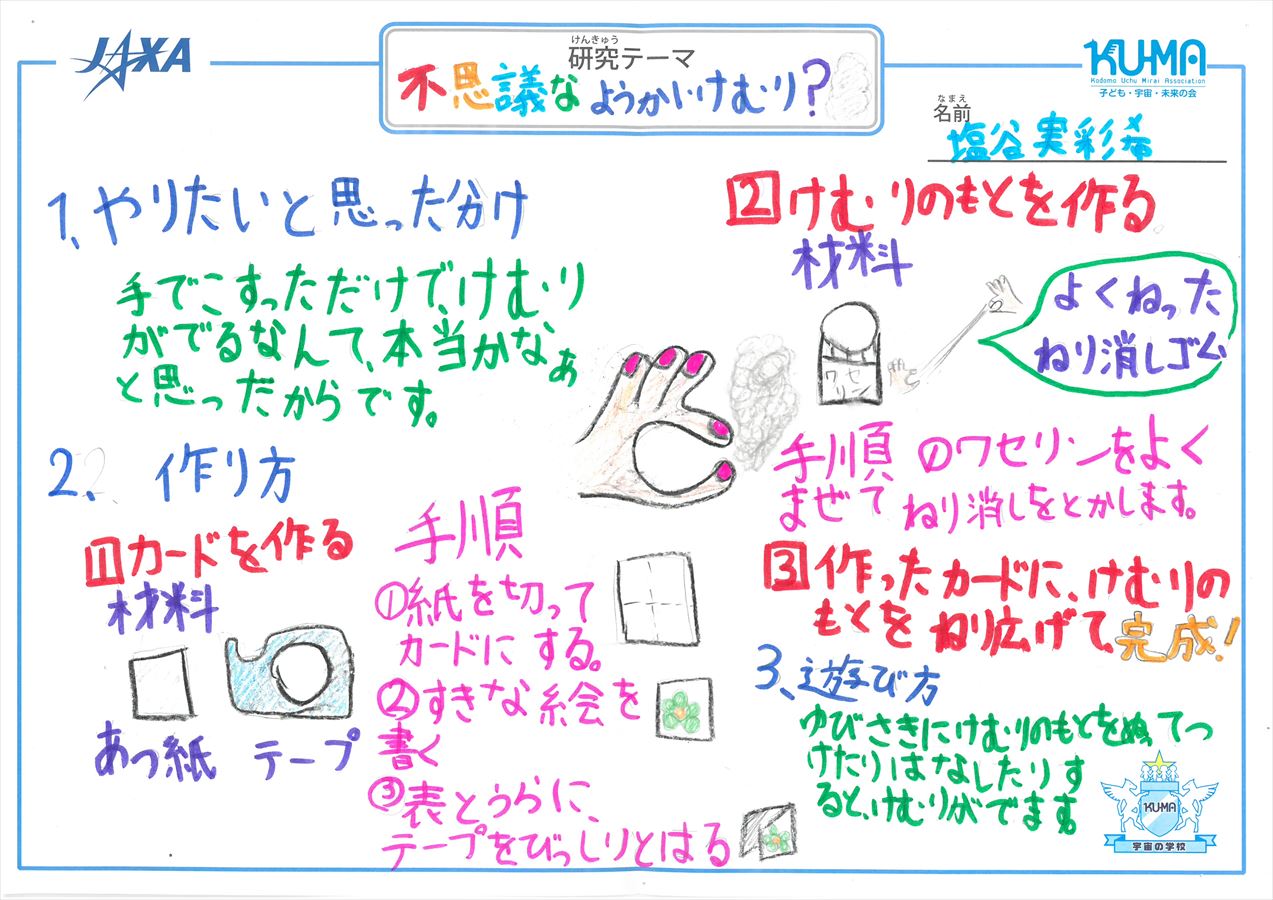 JAXA
けんきゅう
研究テーマ
不思議なようかいけむり?
KU-MA
Kodomo Uchu Mirai Association
子ども・宇宙・未来の会
なまえ
名前
塩谷実彩希
1、やりたいと思った分け
手でこすっただけで、けむり
がでるなんて、本当かなぁ
と思ったからです。
2、作り方
1 カードを作る
材料
あつ紙 テープ
手順
①紙を切って
カードにする。
②すきな絵会を
書く
③表とうらに、
テープをびっしりとはる
2 けむりのもとを作る
材料
ワセ
リン
よくねった
ねり消しゴム
手順 のワセリンをよく
まぜて ねり消しをとかします。
3 作ったカードに、けむりの
もとをねり広げて、完成!
3、遊び方
ゆびさきにけむりのもとをぬってつ
けたりはなしたりす
ると、けむりがでます。
KU-MA
宇宙の学校